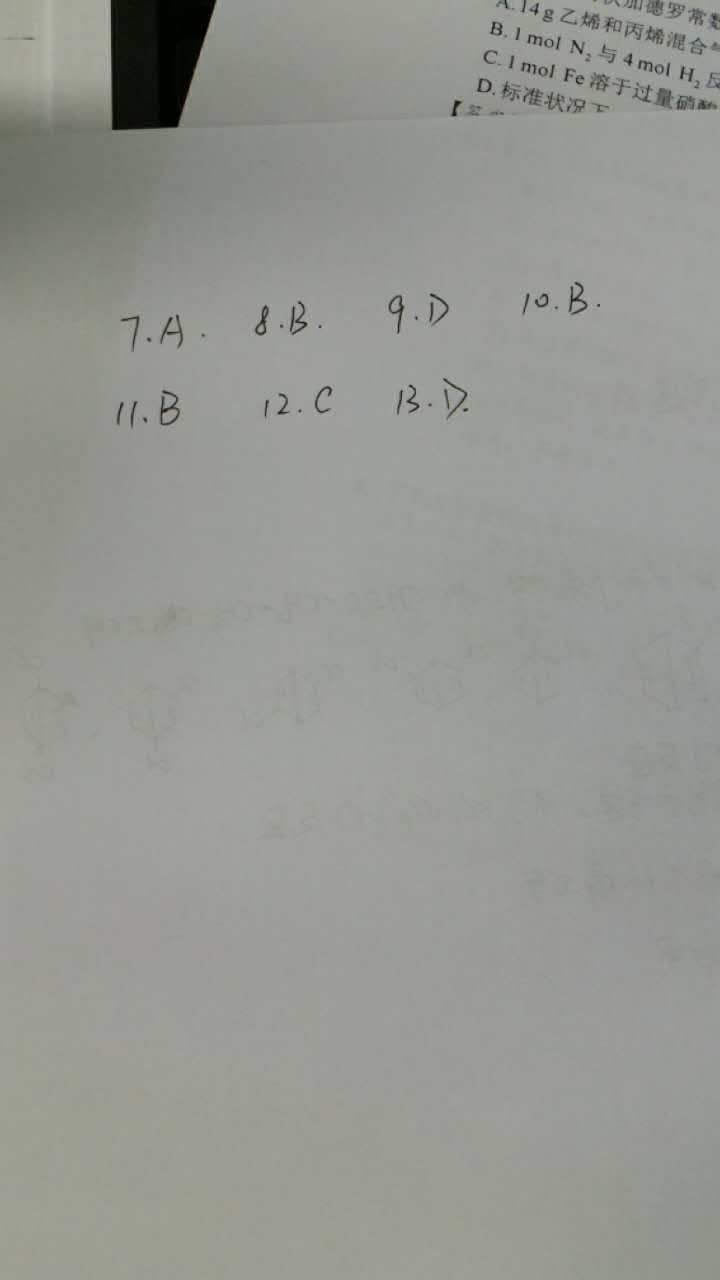 加德罗常数
A.14g乙烯和丙烯混合
B.1 mol N₂与4 mol H₂反
C.1 mol Fe溶于过量硝酸
D.标准状况下
7.A. 8.B. 9.D 10.B.
11.B 12.C 13.D.